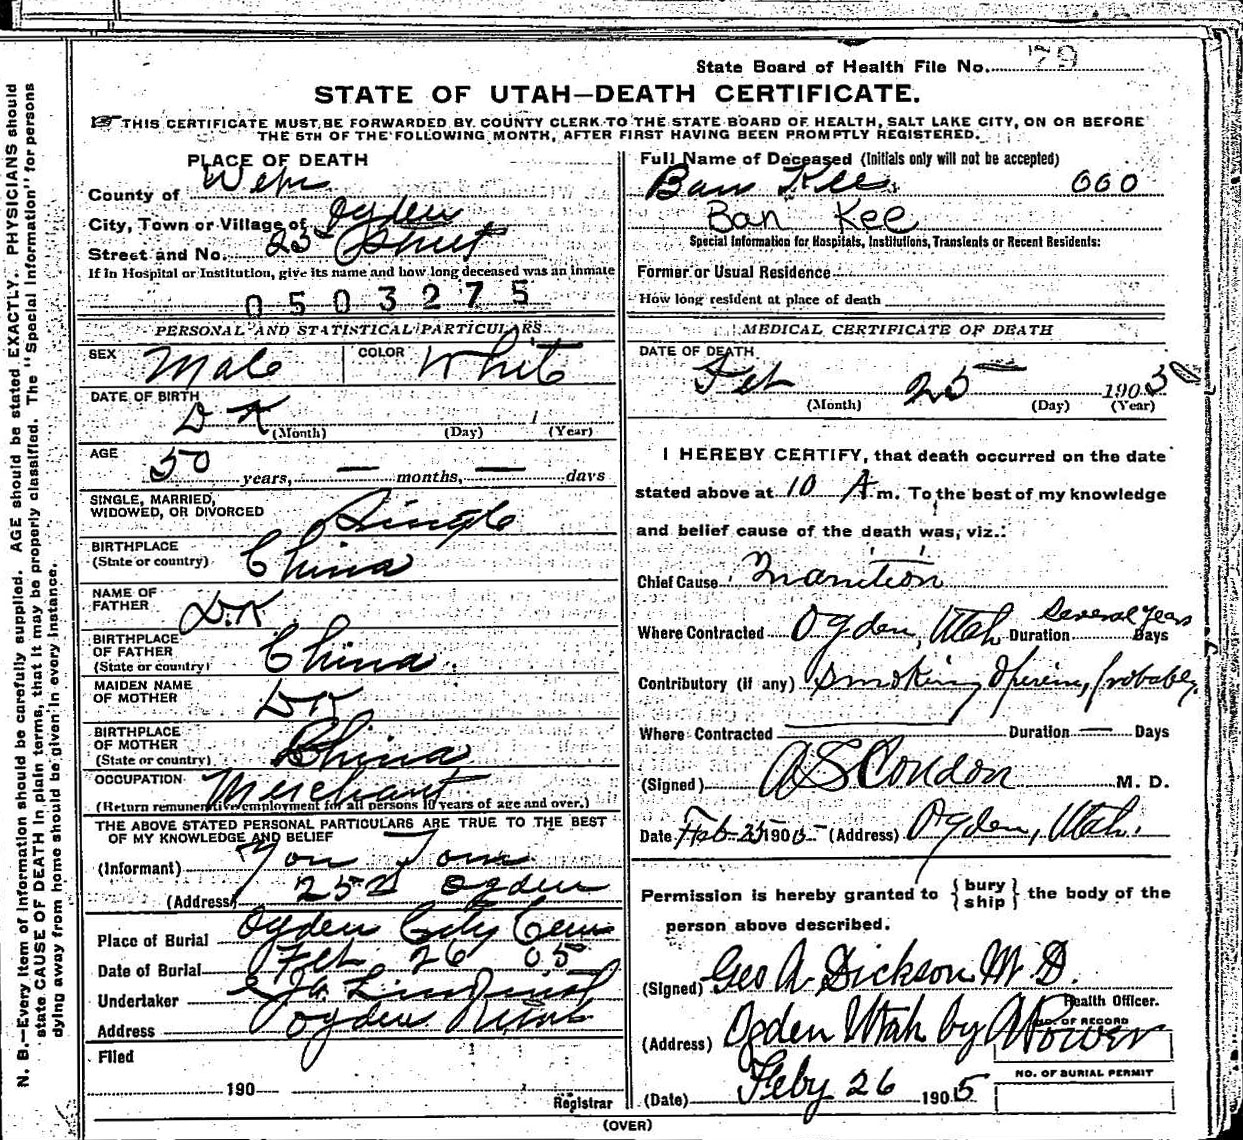 State Board of Health File No. 79
STATE OF UTAH—DEATH CERTIFICATE.
THIS CERTIFICATE MUST BE FORWARDED BY COUNTY CLERK TO THE STATE BOARD OF HEALTH, SALT LAKE CITY, ON OR BEFORE
THE 5TH OF THE FOLLOWING MONTH, AFTER FIRST HAVING BEEN PROMPTLY REGISTERED.
PLACE OF DEATH
County of Weber
City, Town or Village of Ogden
Street and No. 25 Street
If in Hospital or Institution, give its name and how long deceased was an inmate
0503275
PERSONAL AND STATISTICAL PARTICULARS
SEX Male COLOR White
DATE OF BIRTH D K
(Month) (Day) 1 (Year)
AGE
50 years, — months, — days
SINGLE, MARRIED,
WIDOWED, OR DIVORCED Single
BIRTHPLACE
(State or country) China
NAME OF
FATHER D.K
BIRTHPLACE
OF FATHER
(State or country) China.
MAIDEN NAME
OF MOTHER DK
BIRTHPLACE
OF MOTHER
(State or country) China
OCCUPATION Merchant
(Return remunerative employment for all persons 10 years of age and over.)
THE ABOVE STATED PERSONAL PARTICULARS ARE TRUE TO THE BEST
OF MY KNOWLEDGE AND BELIEF
(Informant) Tom
(Address) 252 Ogden
Place of Burial Ogden City Cem
Date of Burial Feb 26 05
Undertaker Lindquist
Address Ogden Utah
Filed
190
Registrar
Full Name of Deceased (Initials only will not be accepted)
Bam Kee. 660
Ban Kee
Special Information for Hospitals, Institutions, Transients or Recent Residents:
Former or Usual Residence
How long resident at place of death
MEDICAL CERTIFICATE OF DEATH
DATE OF DEATH
Feb 25 1905
(Month) (Day) (Year)
I HEREBY CERTIFY, that death occurred on the date
stated above at 10 A m. To the best of my knowledge
and belief cause of the death was, viz.:
Chief Cause Inanition
Where Contracted Ogden, Utah Duration Several Years Days
Contributory (if any) Smoking Opium, probably.
Where Contracted Duration — Days
(Signed) A S Condon M. D.
Date Feb-25 1905 (Address) Ogden, Utah.
Permission is hereby granted to {bury ship} the body of the
person above described.
(Signed) Geo A Dickson M D.
Health Officer.
(Address) Ogden Utah by
NO. OF RECORD
NO. OF BURIAL PERMIT
(Date) Feby 26 1905
(OVER)
N. B.—Every item of information should be carefully supplied. AGE should be stated EXACTLY. PHYSICIANS should
state CAUSE OF DEATH in plain terms, that it may be properly classified. The "Special Information" for persons
dying away from home should be given in every instance.